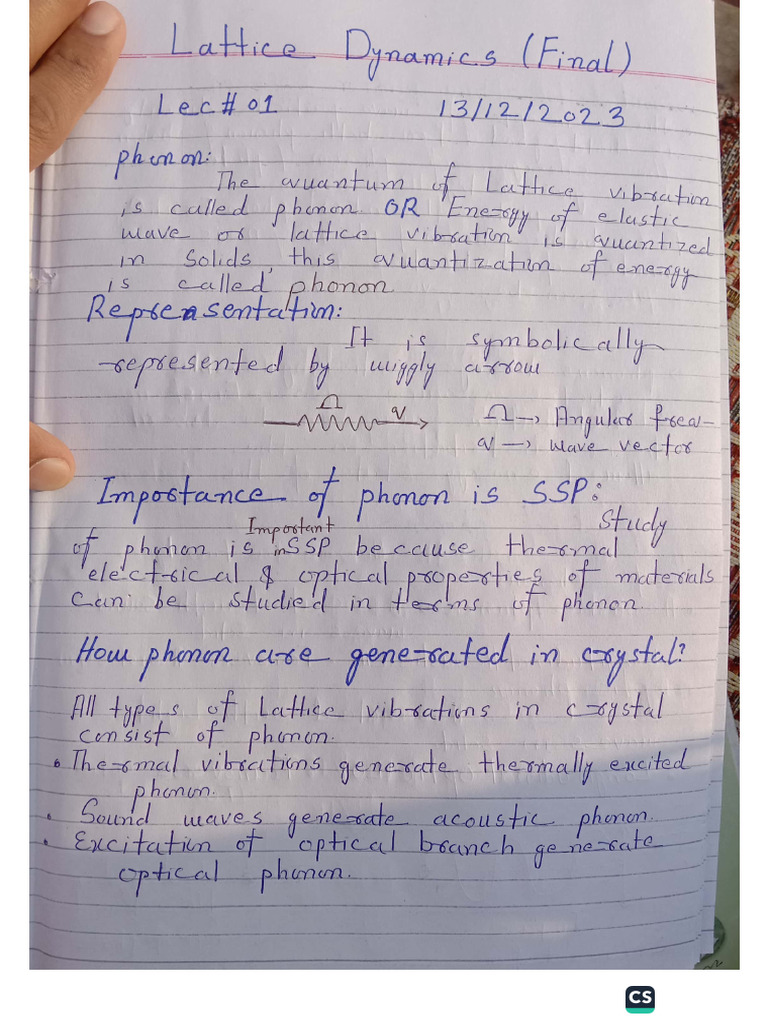 Lattice Dynamics (Final)
Lec# 01 13/12/2023
phonon:
The quantum of Lattice vibration
is called phonon OR Energy of elastic
wave or lattice vibration is quantized
in Solids, this quantization of energy
is called phonon
Reprensentation:
It is symbolically
represented by wiggly arrow
Ω q Ω → Angular freq-
q → wave vector
Importance of phonon is SSP:
Study
Important
of phonon is in SSP because thermal
electrical & optical properties of materials
can be studied in terms of phonon.
How phonon are generated in crystal?
All types of Lattice vibrations in crystal
consist of phonon.
• Thermal vibrations generate thermally excited
phonon.
• Sound waves generate acoustic phonon.
• Excitation of optical branch generate
optical phonon.
CS